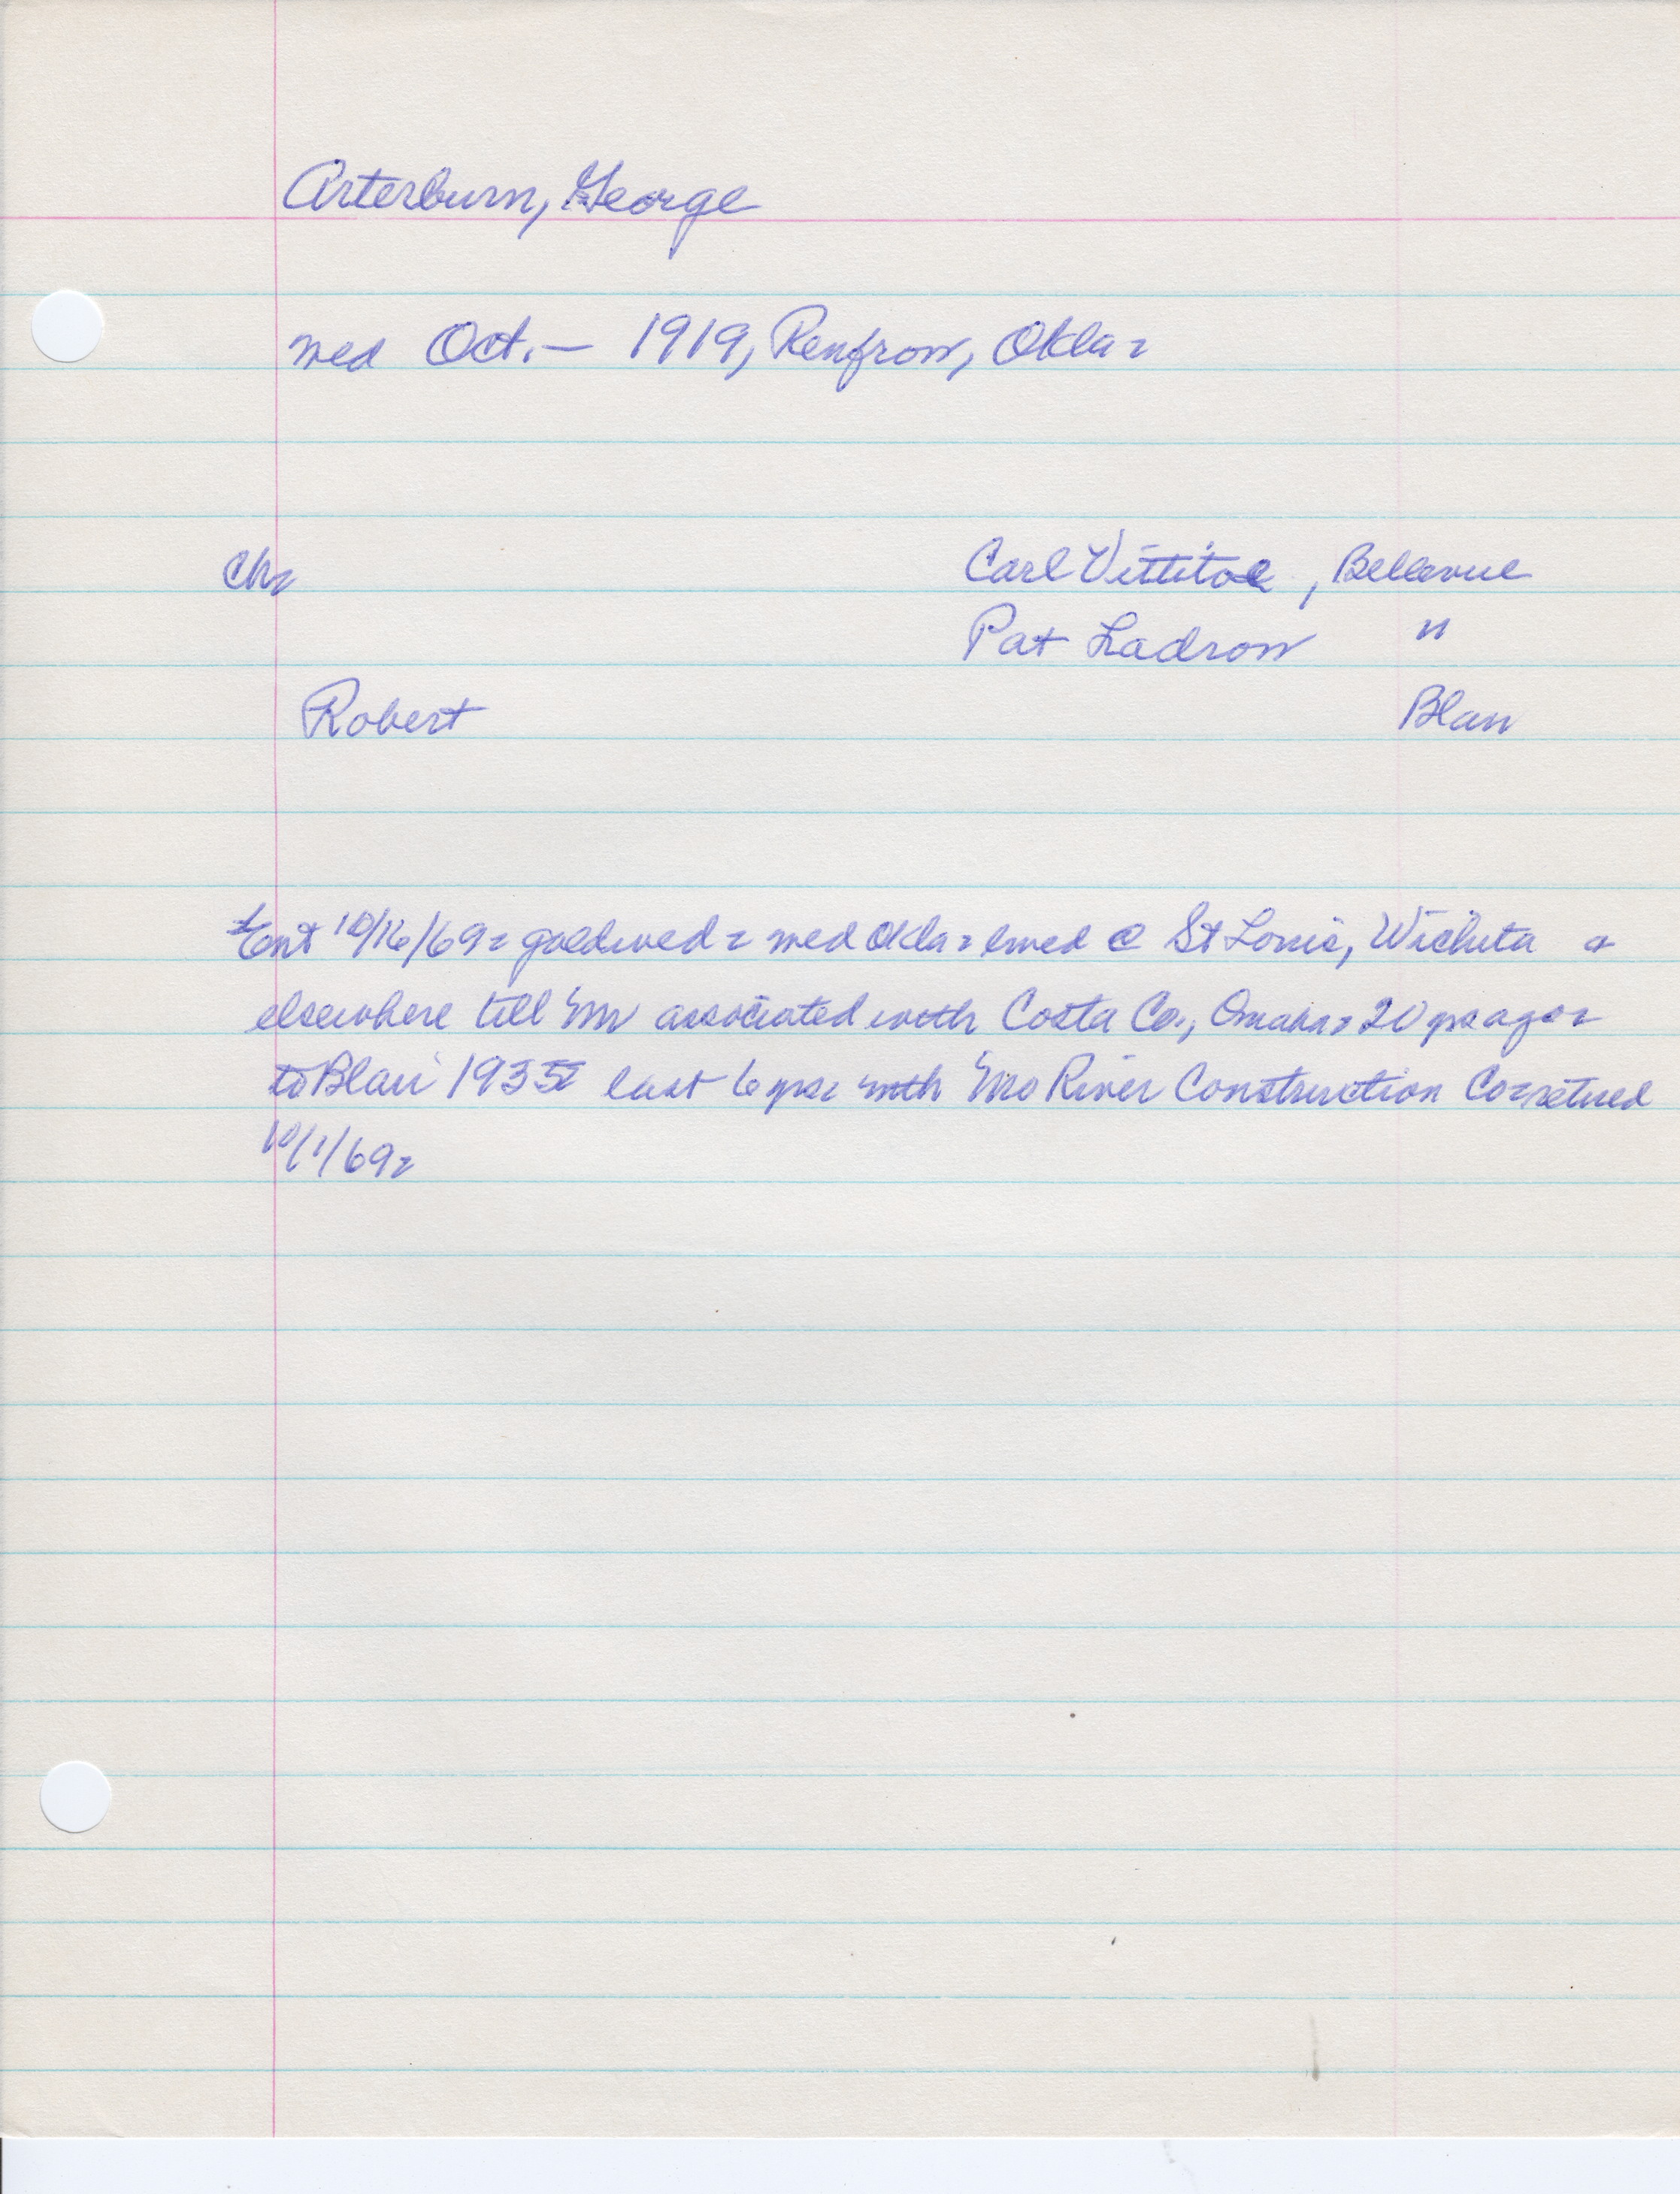 Arterburn, George
wed Oct. — 1919, Renfrow, Okla =
ch=
Carl Vittitoe, Bellevue
Pat Ladrow "
Robert Blair
Ent 10/16/69 = gold wed = wed Okla = lived @ St Louis, Wichita &
elsewhere till Mr associated with Costa Co., Omaha = 20 yrs ago =
to Blair 1935 last 6 yrs = with Mo River Construction Co = retired
10/1/69 =